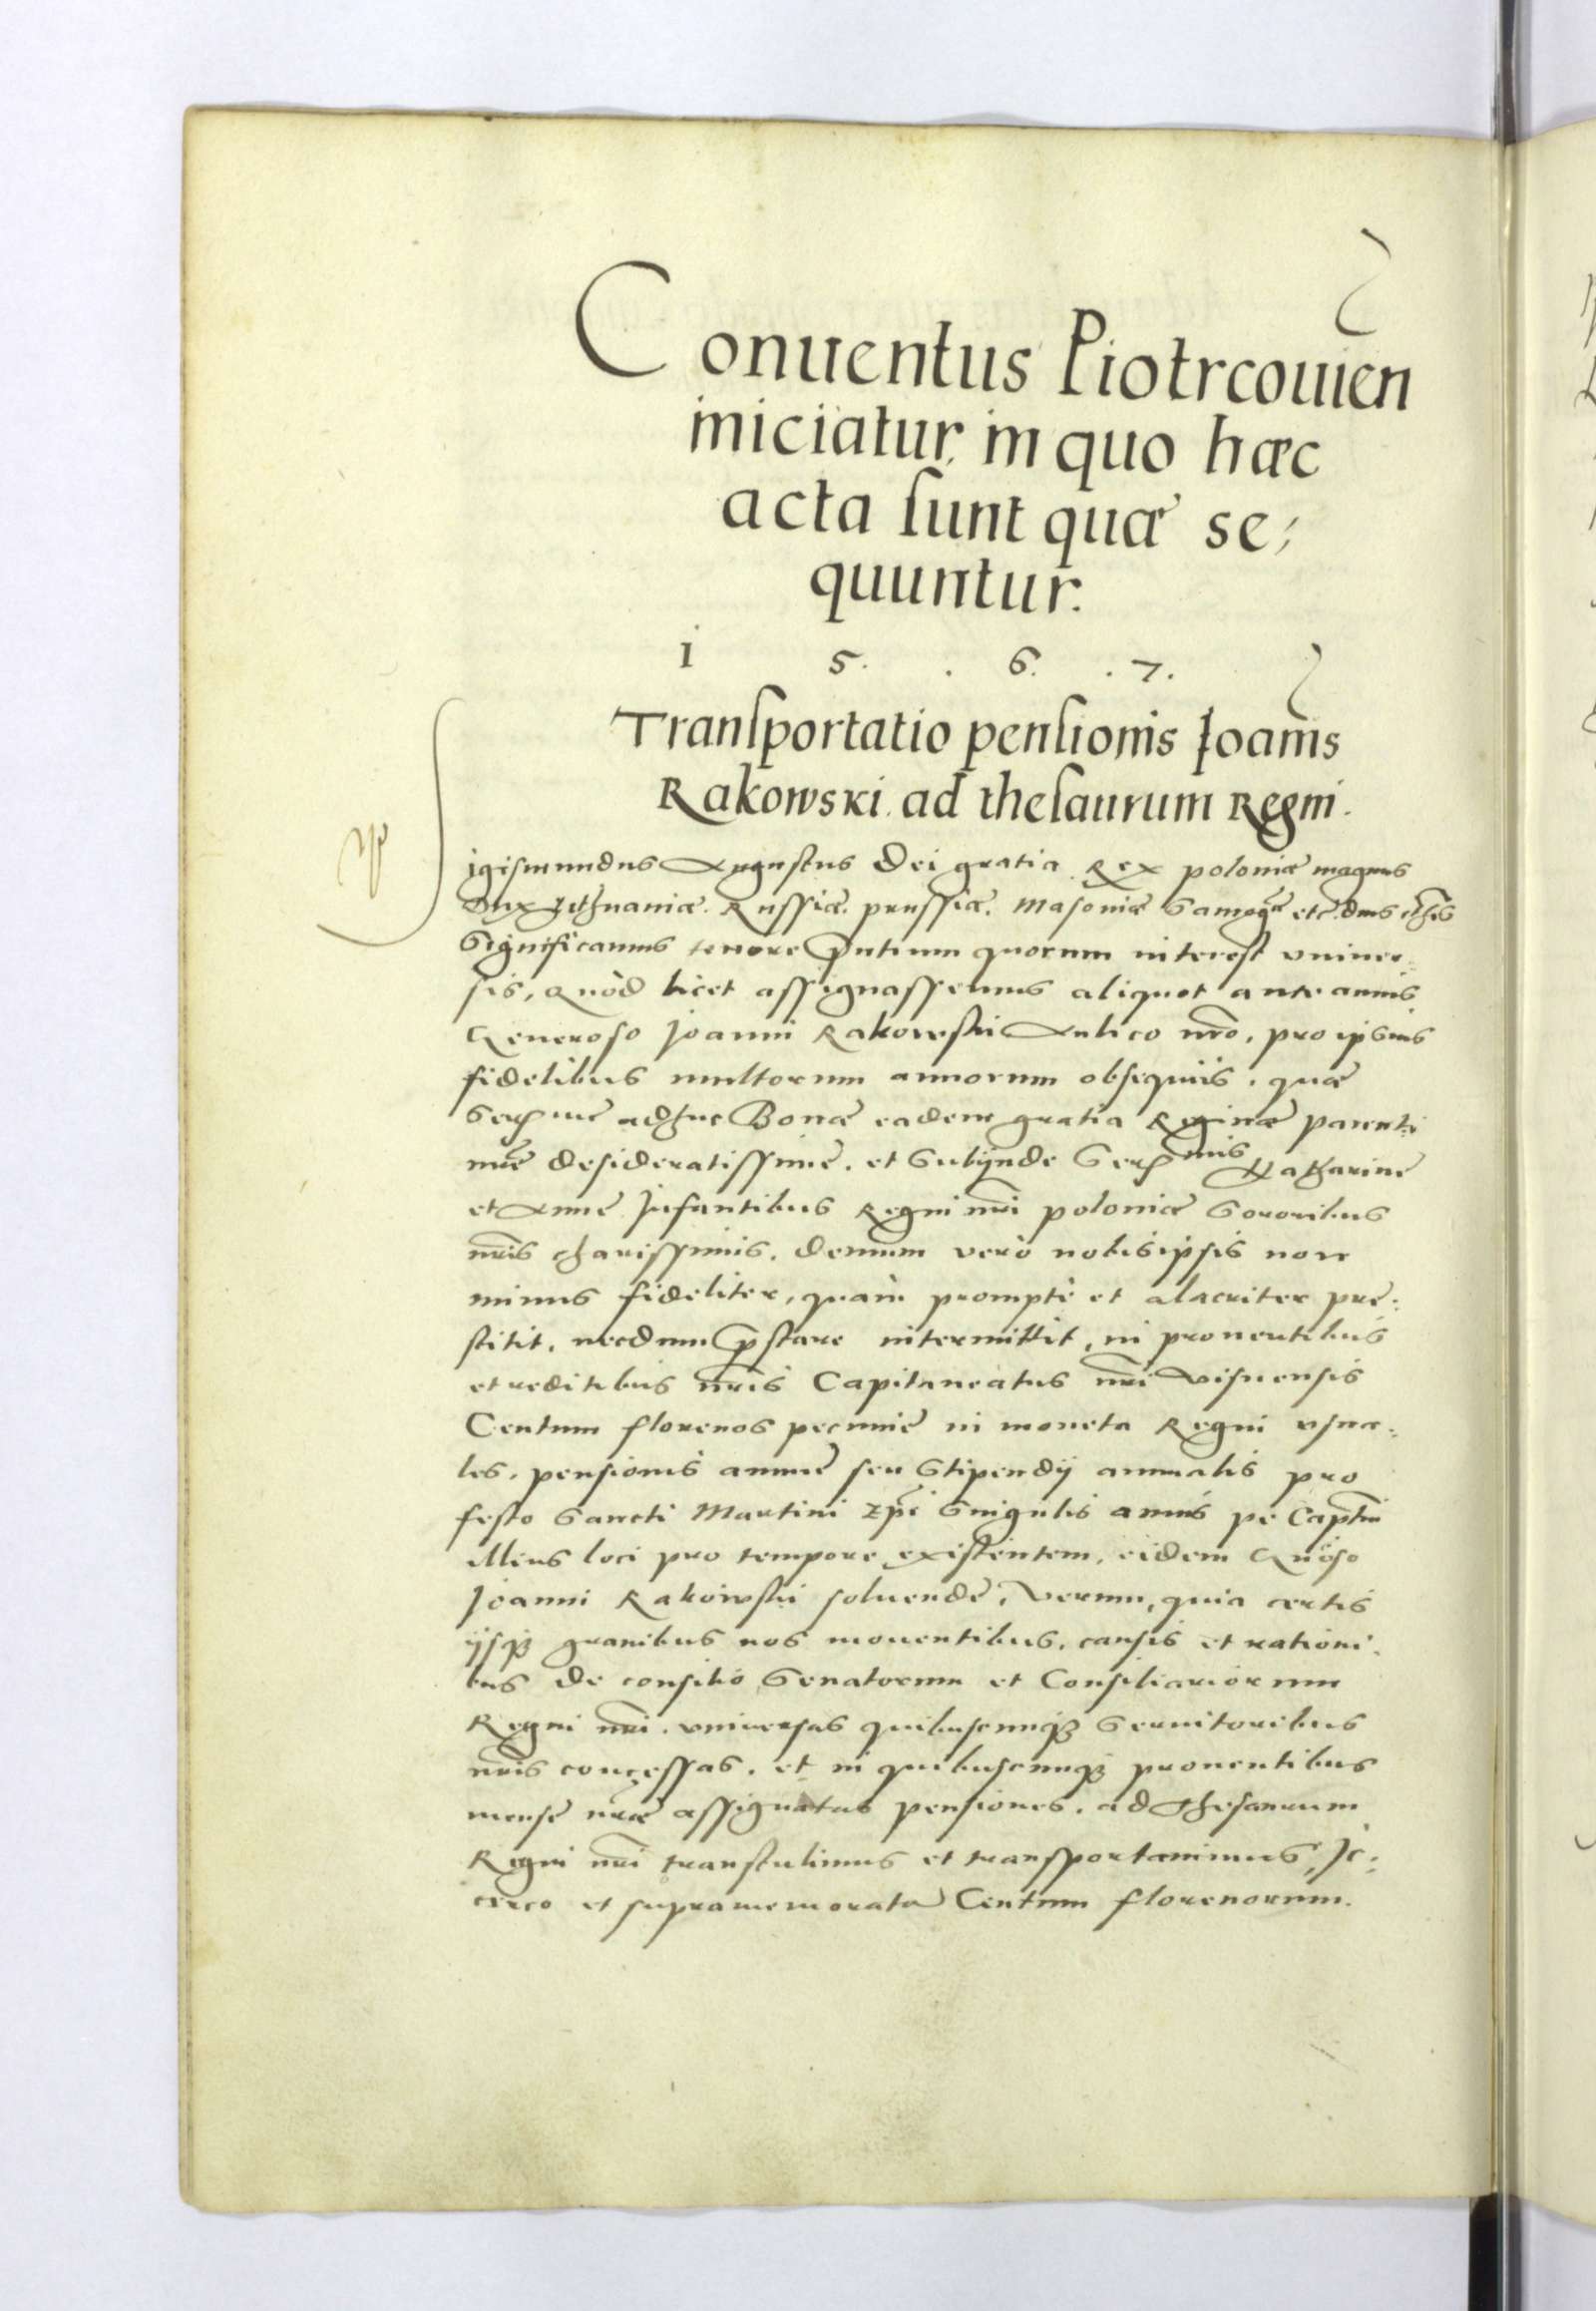 Conuentus Piotrcouien
iniciatur, in quo hæc
acta sunt quæ se,
quuntur.
1 5. . 6. . 7.
Transportatio pensionis Joannis
Rakowski ad thesaurum Regni.
Sigismundus Augustus Dei gratia Rex poloniæ magnus
Dux Lithuaniæ. Russiæ. prussiæ. Masoniæ etc. dns
Significamus tenore pntium quorum interest vniuer,
sis, Quòd licet assignassemus aliquot ante annis
Generoso Joanni Rakowski Aulico nro, pro ipsius
fidelibus multorum annorum obsequiis, quæ
adhuc Bonæ eadem gratia Reginæ parenti
nrę desideratissimę. et Subinde Katharinę
et Annę Infantibus Regni nri poloniæ Sororibus
nris charissimis. demum verò nobis ipsis non
minus fideliter, quàm promptè et alacriter prę,
stitit, necdum pstare intermittit, in prouentibus
et reditibus nris Capitaneatus nri Visnensis
Centum florenos pecunię in moneta Regni vsua,
les, pensionis annuę seu Stipendij annualis pro
festo Sancti Martini Singulis annis pe Captm
illius loci pro tempore existentem, eidem Gnoso
Joanni Rakowski soluendę, Verum, quia certis
ijsq; grauibus nos mouentibus, causis et rationi,
bus de consilio Senatorum et Consiliariorum
Regni nri. vniuersas quibuscunq; Seruitoribus
nris concessas. et in quibuscunq; prouentibus
mensę nræ assignatas pensiones. ad Thesaurum
Regni nri transtulimus et transportauimus, Jc,
circo et supramemorata Centum florenorum.